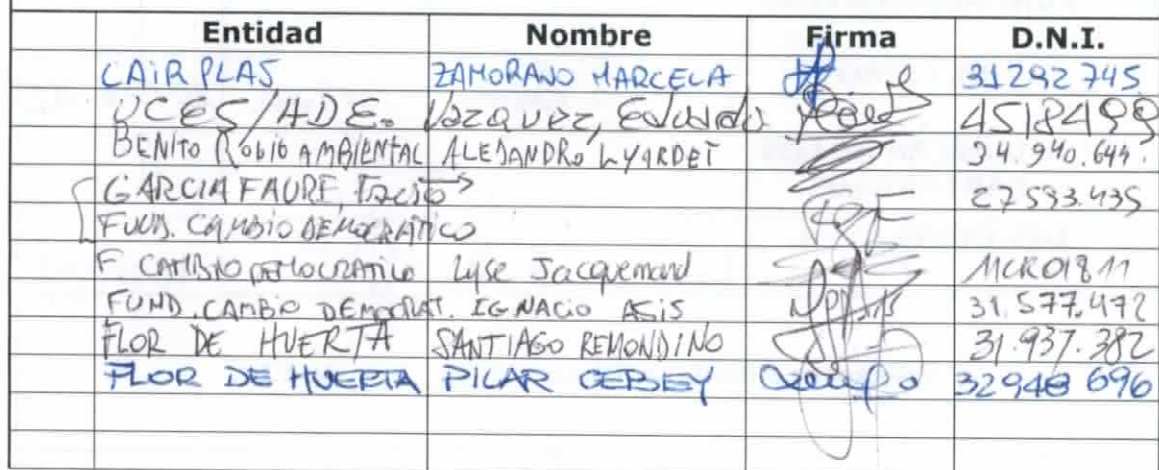 Entidad Nombre Firma D.N.I.
CAIRPLAS ZAMORANO MARCELA 31292745
UCES/ADE. Vazquez, Eduardo 4518499
BENITO ROGGIO AMBIENTAL ALEJANDRO LYARDET 34.940.644.
GARCIA FAURE, 27593.435
FUND. CAMBIO DEMOCRATICO
F CAMBIO DEMOCRATICO Lyse Jacquemard 11CR01811
FUND. CAMBIO DEMOCRAT. IGNACIO ASIS 31.577.472
FLOR DE HUERTA SANTIAGO REMONDINO 31.937.382
FLOR DE HUERTA PILAR 32948 696